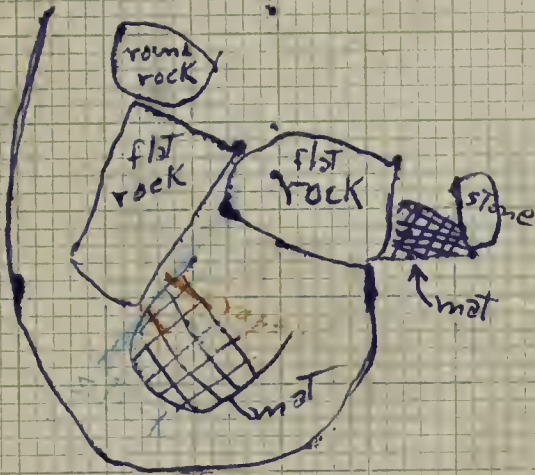 round
rock
flat
rock
flat
rock
stone
mat
mat